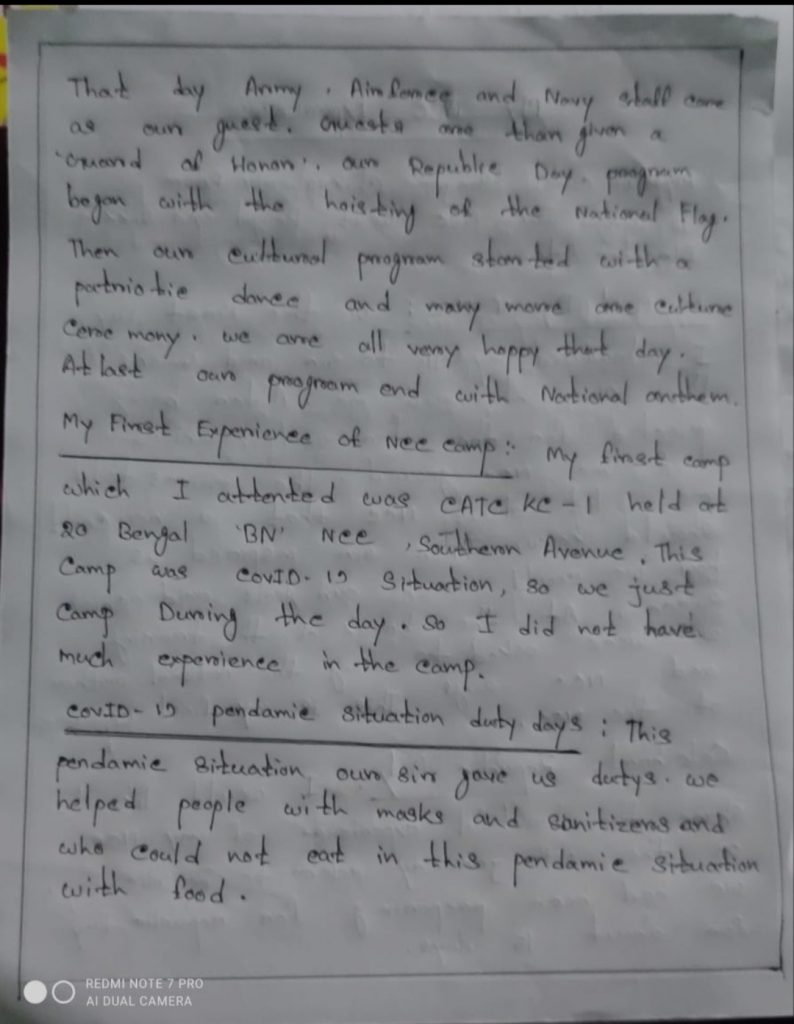 That day Army, Airforce and Navy staff come
as our guest. Guests are than given a
'Guard of Honor'. our Republic Day program
began with the hoisting of the National Flag.
Then our cultural program started with a
patriotic dance and many more are culture
Cere mony. we are all very happy that day.
At last our program end with National anthem.
My First Experience of Ncc camp:- My first camp
which I attented was CATC KC-1 held at
20 Bengal 'BN' Ncc, Southern Avenue. This
Camp was COVID-19 situation, so we just
Camp During the day. so I did not have
much experience in the camp.
COVID-19 pendamic situation duty days : This
pendamic situation our sir gave us dutys. we
helped people with masks and sanitizers and
who could not eat in this pendamic situation
with food.
REDMI NOTE 7 PRO
AI DUAL CAMERA